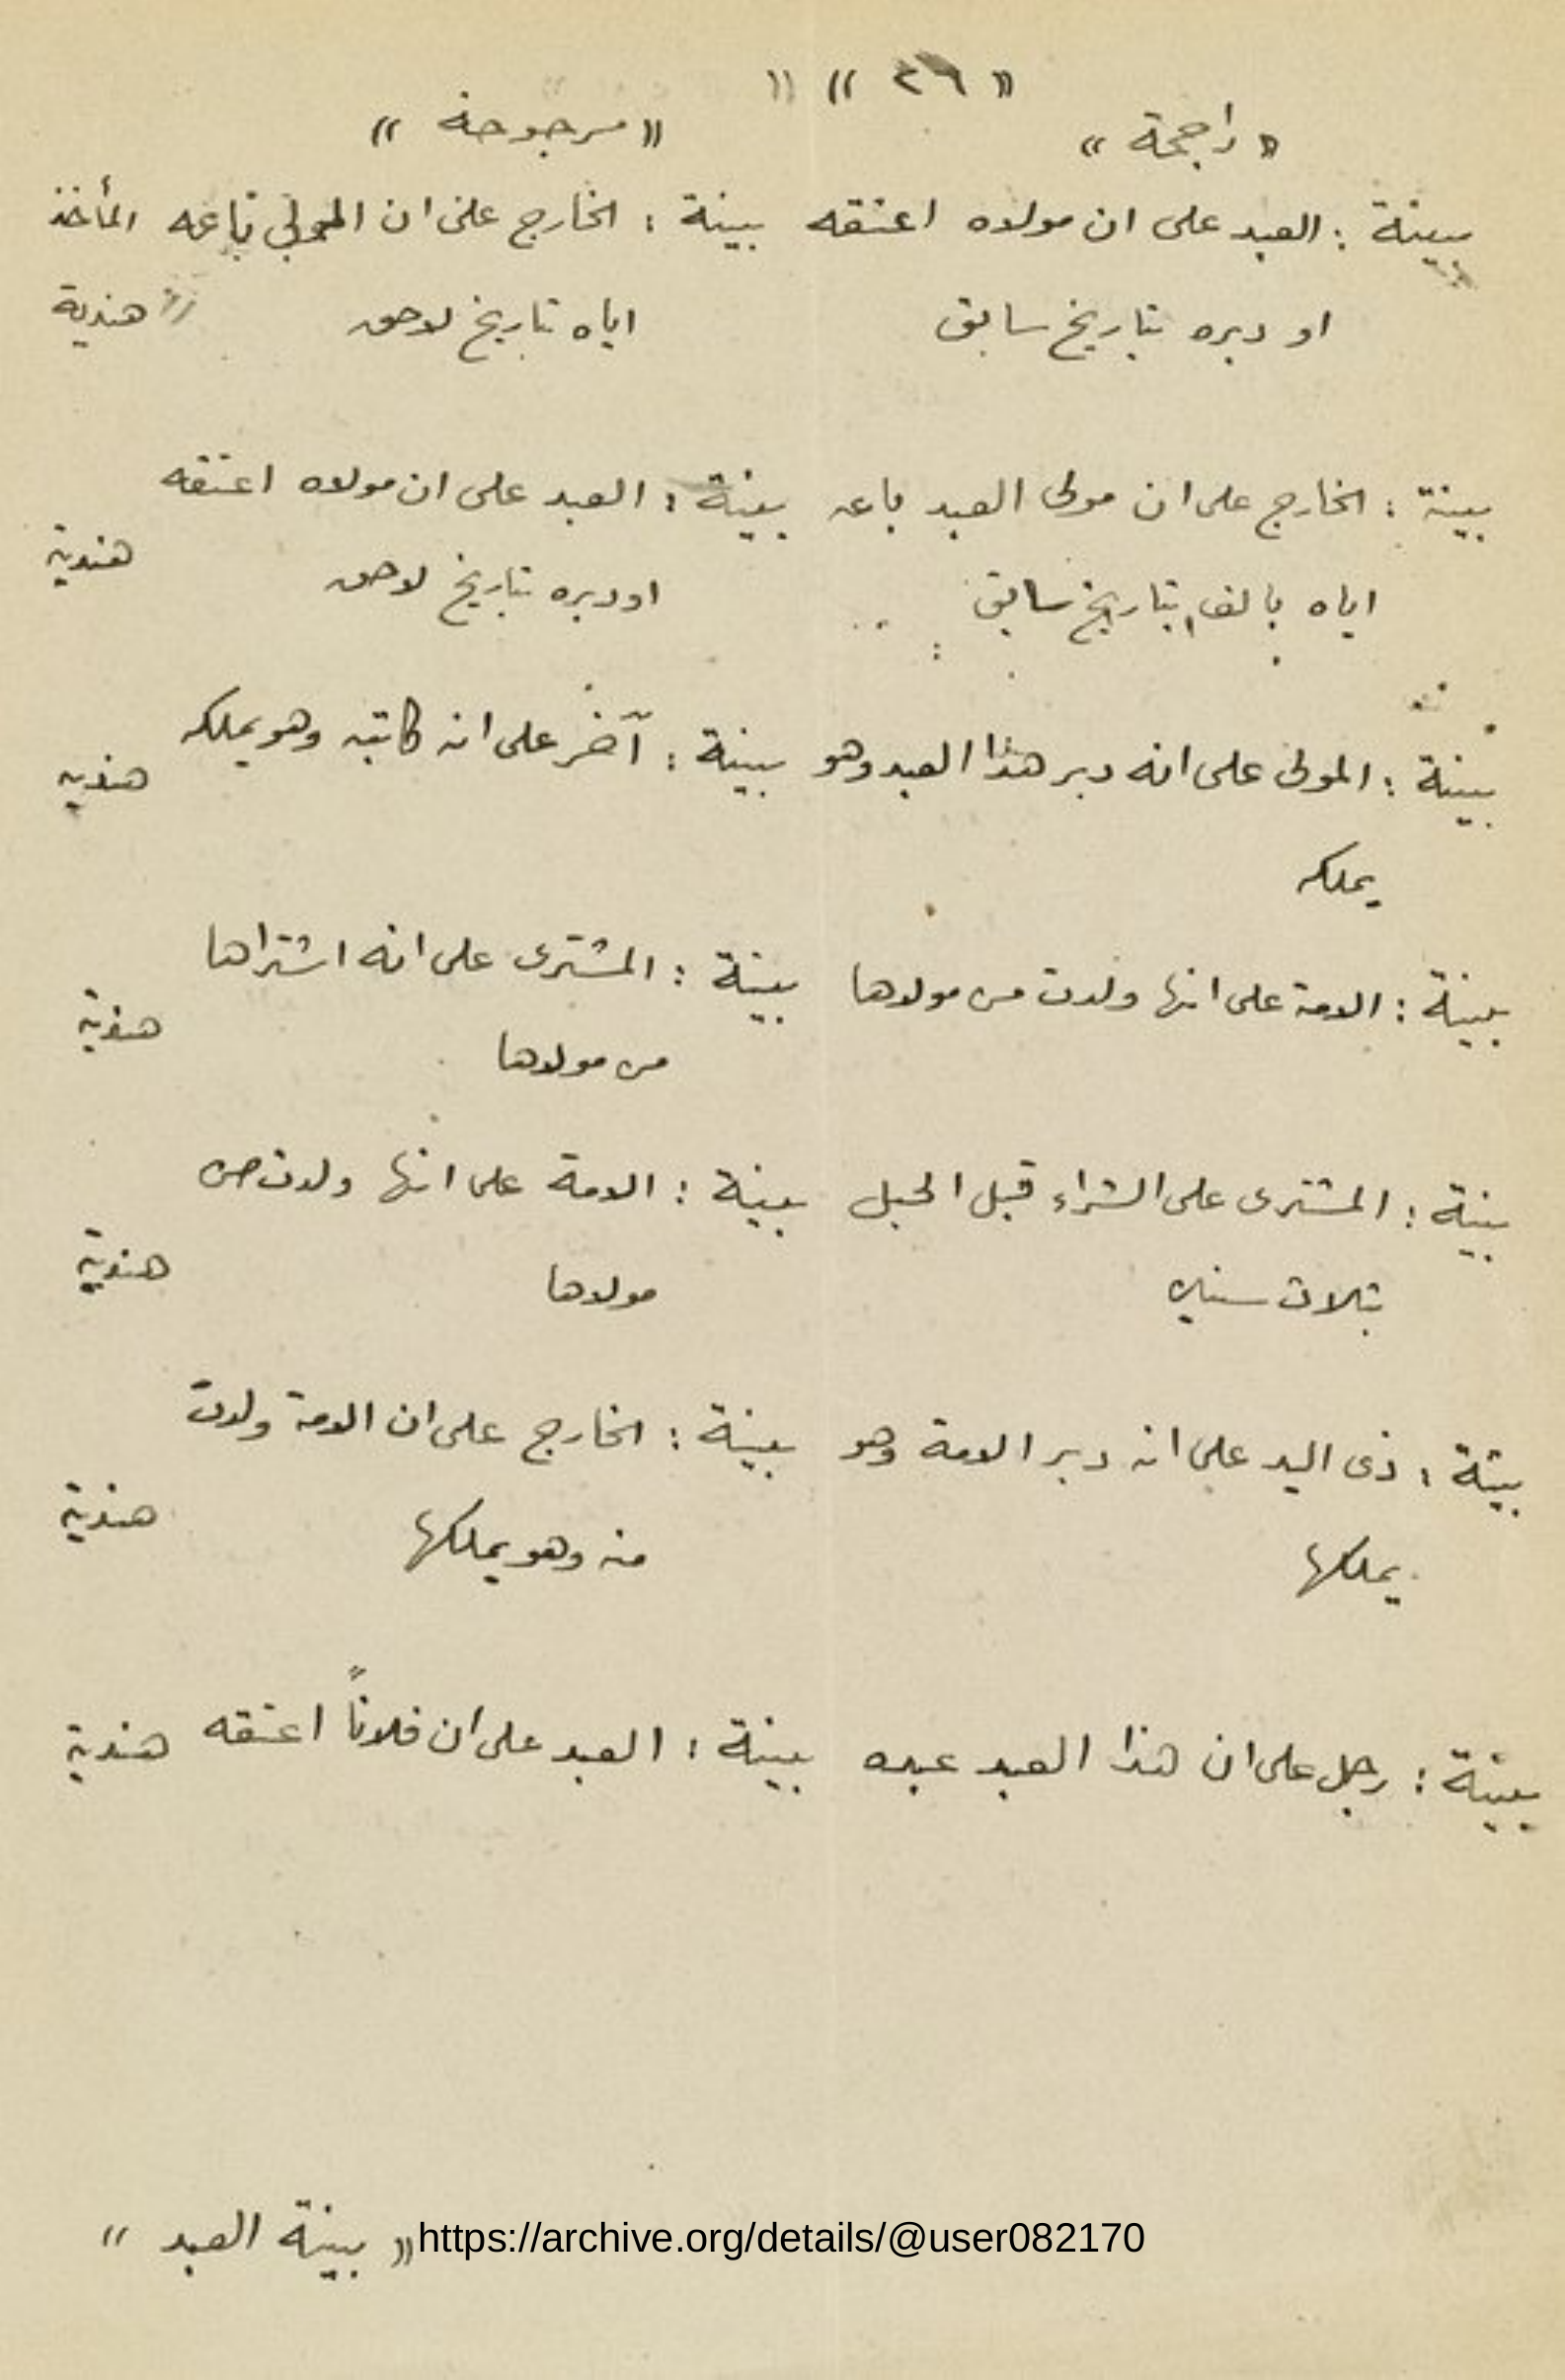 « ٢٦ »
« راجحة » « مرجوحة »
بينة : العبد على ان مولاه اعتقه بينة : الخارج على ان المولى باعه المأخذ
او دبره بتاريخ سابق اياه بتاريخ لاحق هندية
بينة : الخارج على ان مولى العبد باعه بينة : العبد على ان مولاه اعتقه
اياه بالف بتاريخ سابق او دبره بتاريخ لاحق هندية
بينة : المولى على انه دبر هذا العبد وهو بينة : آخر على انه كاتبه وهو يملكه هنديه
يملكه
بينة : الامة على انها ولدت من مولاها بينة : المشترى على انه اشتراها
من مولاها هندية
بينة : المشترى على الشراء قبل الحبل بينة : الامة على انها ولدت من
بثلاث سنين مولاها هندية
بينة : ذى اليد على انه دبر الامة وهو بينة : الخارج على ان الامة ولدت
يملكها منه وهو يملكها هندية
بينة : رجل على ان هذا العبد عبده بينة : العبد على ان فلاناً اعتقه هندية
« بينة العبد »
https://archive.org/details/@user082170